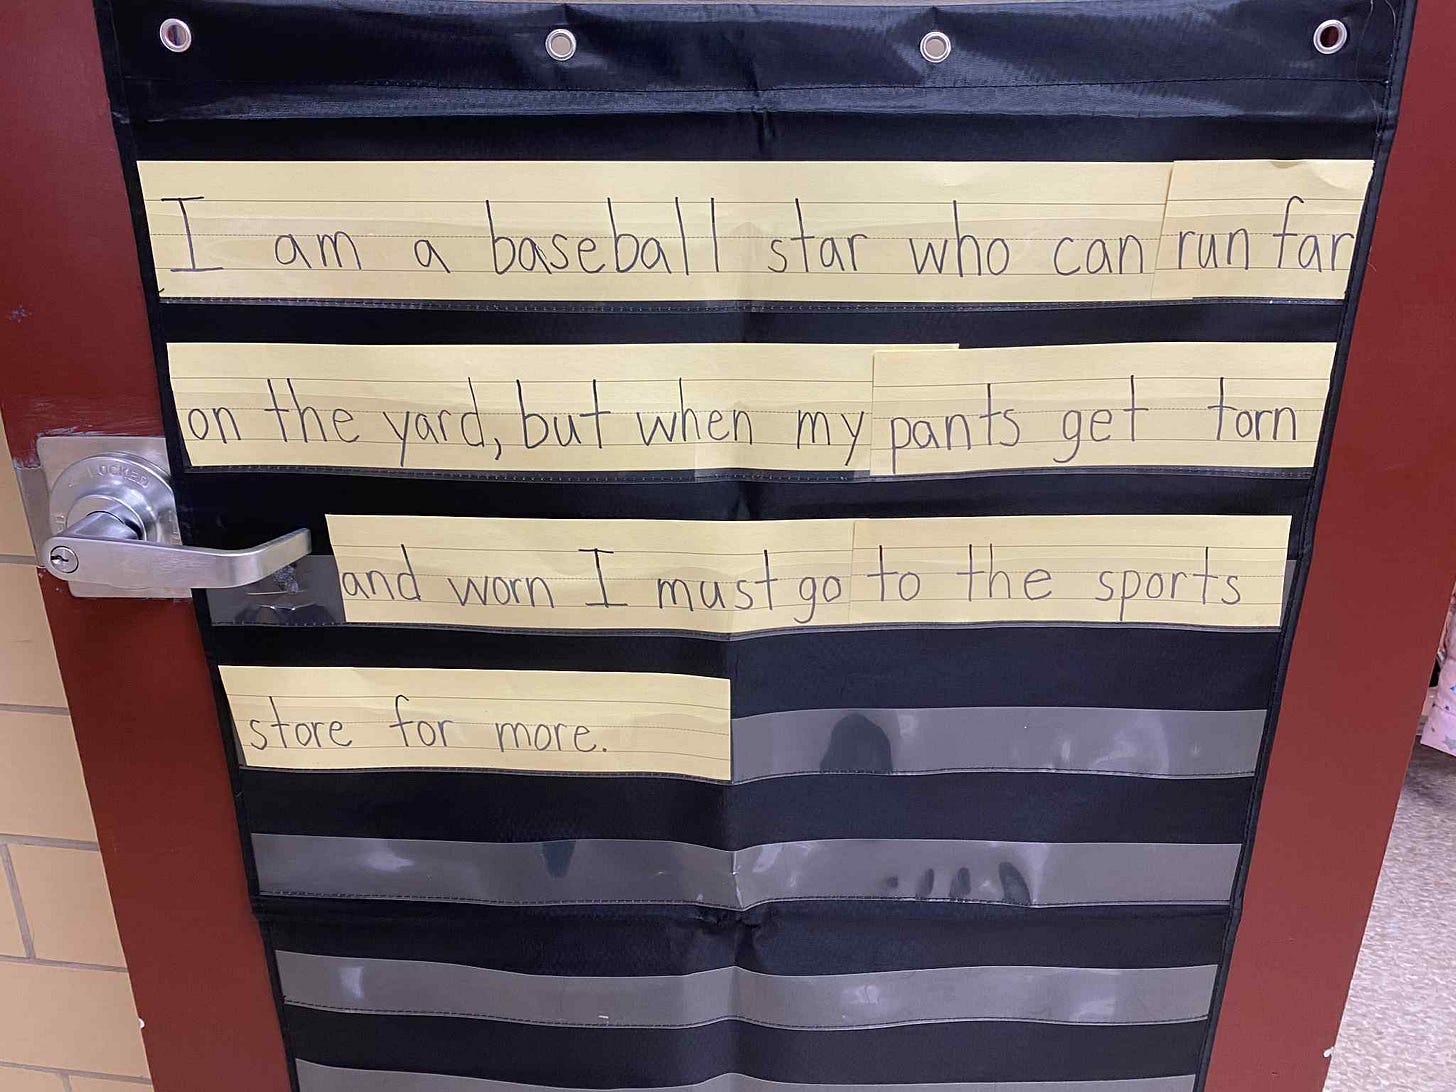 I am a baseball star who can run far
on the yard, but when my pants get torn
and worn I must go to the sports
store for more.
LOCKED